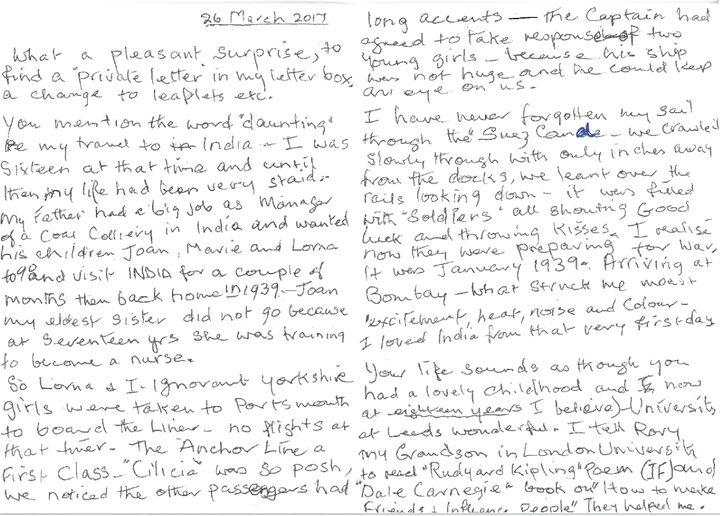 26 March 2017
What a pleasant surprise, to
find a "private letter" in my letter box,
a change to leaflets etc.
You mention the word "daunting"
Re my travel to India - I was
Sixteen at that time and until
then my life had been very staid.-
My Father had a big job as Manager
of a Coal Colliery in India and wanted
his children Joan, Marie and Lorna
to go and visit INDIA for a couple of
months then back home in 1939 - Joan
my eldest sister did not go because
at seventeen yrs she was training
to become a nurse.
So Lorna & I. Ignorant Yorkshire
girls were taken to Portsmouth
to board the Liner - no flights at
that time. - The Anchor Line a
First Class - "Cilicia" was so posh,
we noticed the other passengers had
long accents — the Captain had
agreed to take response of two
young girls - because his ship
was not huge and he could keep
an eye on us.
I have never forgotten my sail
through the "Suez Canale - we crawled
slowly through with only inches away
from the docks, we leant over the
rails looking down - it was filled
with "Soldiers" all shouting Good
luck and throwing Kisses. I realise
now they were preparing for War,
It was January 1939. Arriving at
Bombay - what struck me most
"excitement, heat, noise and Colour -
I loved India from that very first day
Your life sounds as though you
had a lovely childhood and now
at eighteen years I believe) - University
at Leeds wonderful. I tell Rory
my Grandson in London University
to read "Rudyard Kipling" Poem (IF) and
"Dale Carnegie" book on "How to make
Friends & Influence People" They helped me.